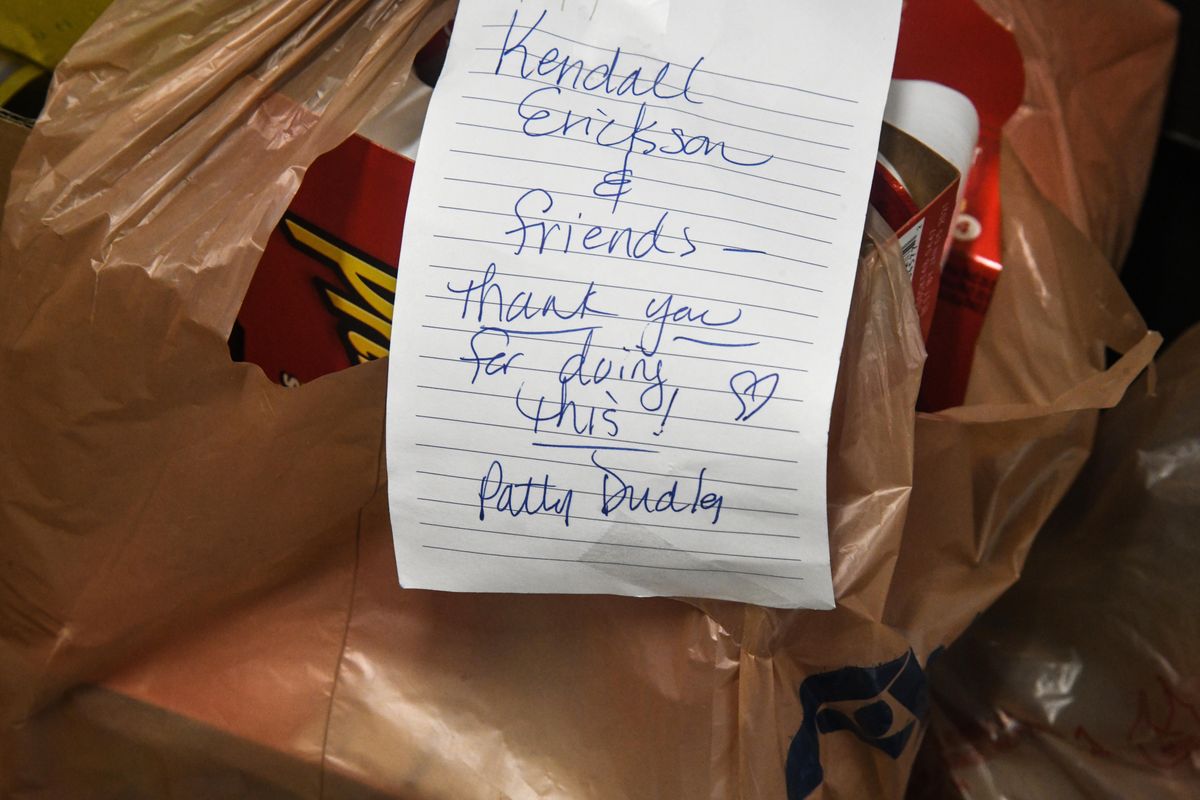 Kendall
Erickson
&
friends —
thank you
for doing
this!
Patty Dudley